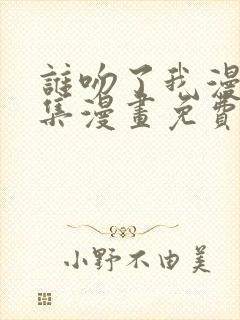 誰吻了我漫
集漫畫免費
小野不由美